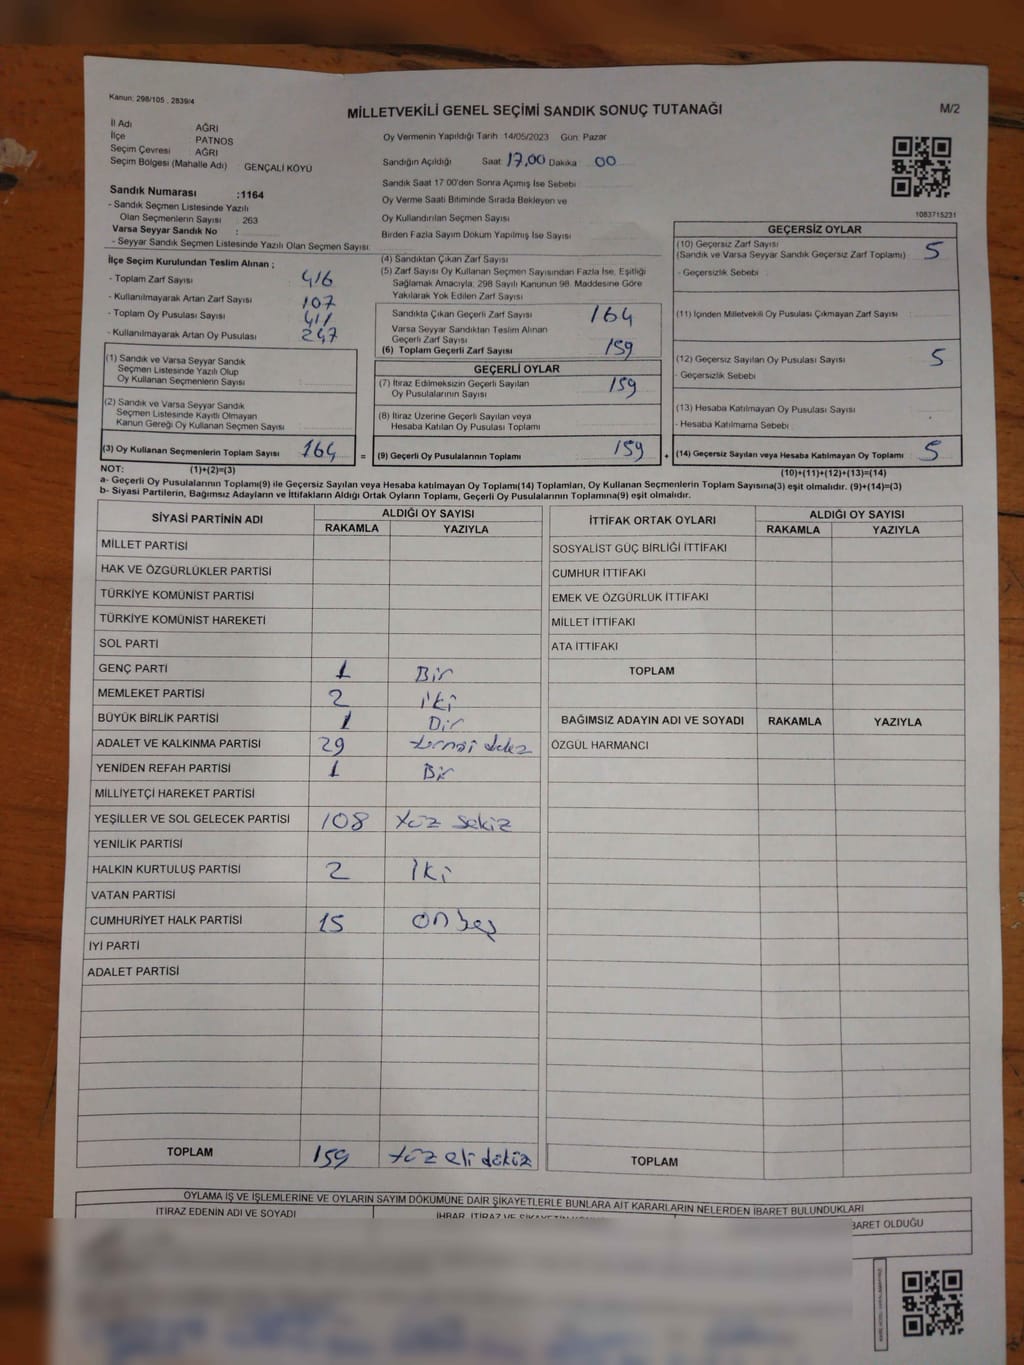 Kanun: 298/105 , 2839/4
MİLLETVEKİLİ GENEL SEÇİMİ SANDIK SONUÇ TUTANAĞI
M/2
İl Adı AĞRI
İlçe PATNOS
Seçim Çevresi AĞRI
Seçim Bölgesi (Mahalle Adı) GENÇALİ KÖYÜ
Sandık Numarası :1164
- Sandık Seçmen Listesinde Yazılı
Olan Seçmenlerin Sayısı 263
Varsa Seyyar Sandık No :
- Seyyar Sandık Seçmen Listesinde Yazılı Olan Seçmen Sayısı:
Oy Vermenin Yapıldığı Tarih 14/05/2023 Gün: Pazar
Sandığın Açıldığı Saat: 17,00 Dakika 00
Sandık Saat 17:00'den Sonra Açımış İse Sebebi
Oy Verme Saati Bitiminde Sırada Bekleyen ve
Oy Kullandırılan Seçmen Sayısı
Birden Fazla Sayım Döküm Yapılmış İse Sayısı
1083715231
İlçe Seçim Kurulundan Teslim Alınan ;
- Toplam Zarf Sayısı 416
- Kullanılmayarak Artan Zarf Sayısı 107
- Toplam Oy Pusulası Sayısı 411
- Kullanılmayarak Artan Oy Pusulası 247
(1) Sandık ve Varsa Seyyar Sandık
Seçmen Listesinde Yazılı Olup
Oy Kullanan Seçmenlerin Sayısı
(2) Sandık ve Varsa Seyyar Sandık
Seçmen Listesinde Kayıtlı Olmayan
Kanun Gereği Oy Kullanan Seçmen Sayısı
(3) Oy Kullanan Seçmenlerin Toplam Sayısı 164 =
(4) Sandıktan Çıkan Zarf Sayısı
(5) Zarf Sayısı Oy Kullanan Seçmen Sayısından Fazla İse, Eşitliği
Sağlamak Amacıyla; 298 Sayılı Kanunun 98. Maddesine Göre
Yakılarak Yok Edilen Zarf Sayısı
Sandıkta Çıkan Geçerli Zarf Sayısı 164
Varsa Seyyar Sandıktan Teslim Alınan
Geçerli Zarf Sayısı
(6) Toplam Geçerli Zarf Sayısı 159
GEÇERLİ OYLAR
(7) İtiraz Edilmeksizin Geçerli Sayılan
Oy Pusulalarının Sayısı 159
(8) İtiraz Üzerine Geçerli Sayılan veya
Hesaba Katılan Oy Pusulası Toplamı
(9) Geçerli Oy Pusulalarının Toplamı 159 +
GEÇERSİZ OYLAR
(10) Geçersiz Zarf Sayısı 5
(Sandık ve Varsa Seyyar Sandık Geçersiz Zarf Toplamı)
- Geçersizlik Sebebi :
(11) İçinden Milletvekili Oy Pusulası Çıkmayan Zarf Sayısı
(12) Geçersiz Sayılan Oy Pusulası Sayısı 5
- Geçersizlik Sebebi
(13) Hesaba Katılmayan Oy Pusulası Sayısı
- Hesaba Katılmama Sebebi
(14) Geçersiz Sayılan veya Hesaba Katılmayan Oy Toplamı 5
NOT: (1)+(2)=(3)
(10)+(11)+(12)+(13)=(14)
a- Geçerli Oy Pusulalarının Toplamı(9) ile Geçersiz Sayılan veya Hesaba katılmayan Oy Toplamı(14) Toplamları, Oy Kullanan Seçmenlerin Toplam Sayısına(3) eşit olmalıdır. (9)+(14)=(3)
b- Siyasi Partilerin, Bağımsız Adayların ve İttifakların Aldığı Ortak Oyların Toplamı, Geçerli Oy Pusulalarının Toplamına(9) eşit olmalıdır.
SİYASİ PARTİNİN ADI ALDIĞI OY SAYISI
RAKAMLA YAZIYLA
MİLLET PARTİSİ
HAK VE ÖZGÜRLÜKLER PARTİSİ
TÜRKİYE KOMÜNİST PARTİSİ
TÜRKİYE KOMÜNİST HAREKETİ
SOL PARTİ
GENÇ PARTİ 1 Bir
MEMLEKET PARTİSİ 2 iki
BÜYÜK BİRLİK PARTİSİ 1 Bir
ADALET VE KALKINMA PARTİSİ 29
YENİDEN REFAH PARTİSİ 1 Bir
MİLLİYETÇİ HAREKET PARTİSİ
YEŞİLLER VE SOL GELECEK PARTİSİ 108 yüz sekiz
YENİLİK PARTİSİ
HALKIN KURTULUŞ PARTİSİ 2 iki
VATAN PARTİSİ
CUMHURİYET HALK PARTİSİ 15 on beş
İYİ PARTİ
ADALET PARTİSİ
TOPLAM 159 yüz eli dokuz
İTTİFAK ORTAK OYLARI ALDIĞI OY SAYISI
RAKAMLA YAZIYLA
SOSYALİST GÜÇ BİRLİĞİ İTTİFAKI
CUMHUR İTTİFAKI
EMEK VE ÖZGÜRLÜK İTTİFAKI
MİLLET İTTİFAKI
ATA İTTİFAKI
TOPLAM
BAĞIMSIZ ADAYIN ADI VE SOYADI RAKAMLA YAZIYLA
ÖZGÜL HARMANCI
TOPLAM
OYLAMA İŞ VE İŞLEMLERİNE VE OYLARIN SAYIM DÖKÜMÜNE DAİR ŞİKAYETLERLE BUNLARA AİT KARARLARIN NELERDEN İBARET BULUNDUKLARI
İTİRAZ EDENİN ADI VE SOYADI
İHBAR, İTİRAZ VE
BARET OLDUĞU